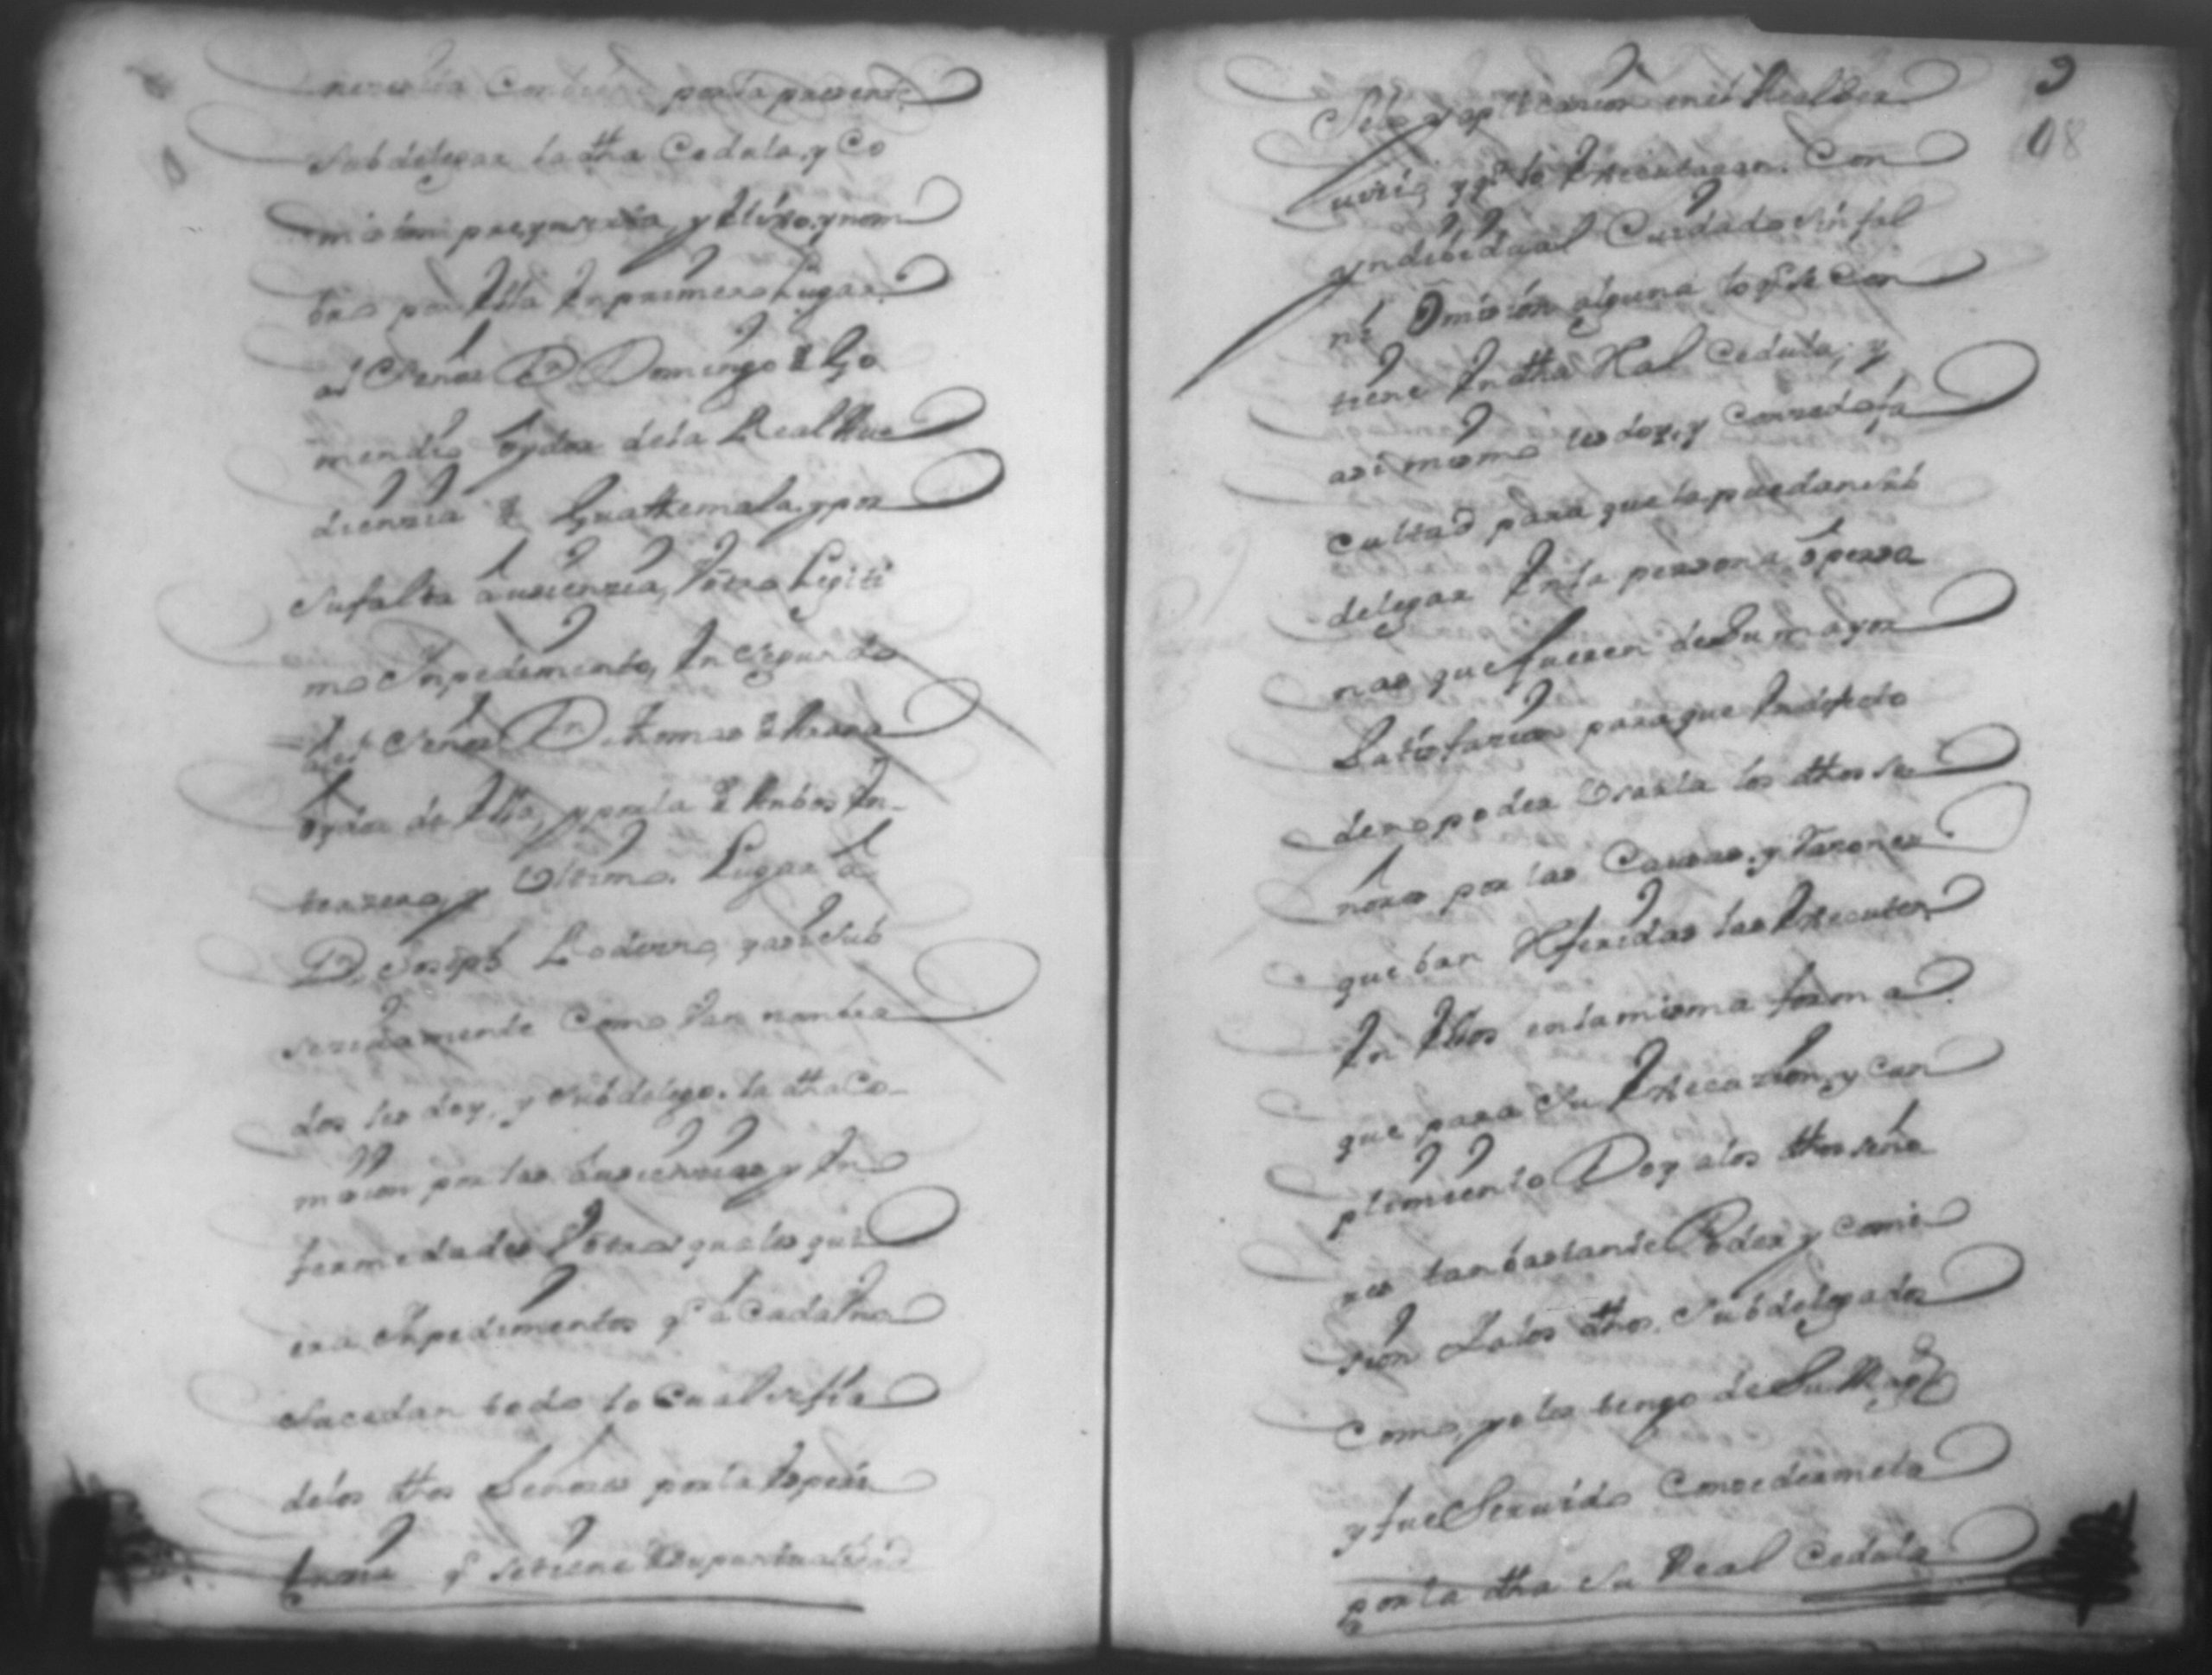 por la presente
Subdelegar la dha Cedula, y Co
mision preynserta, y Elixo, y nom
bro por Ella En primero Lugar
al Señor Dn Domingo de Go
mendio oydor de la Real Au
dienzia de Guathemala, y por
su falta ausienzia, V otro Legiti
mo Ynpedimento, En Segundo
al Señor Dn thomas de Arana
oydor de Ella, y por la de Anbos En
terzero, y Ultimo Lugar a
Dn Joseph Rodezno, y asi sub
sezidamente Como Van nonbra
dos les doy, y subdelego, la dha Co
mision por las Ausienzias y En
fermedades V otros quales qui
era Ynpedimentos q a Cada Vno
sucedan todo lo Cual se fia
de los dhos Señores por la Espeir
Enzia q se tiene de su puntualidad
9
08
Selo y aplicazion en el Real Ser
uizio, y q lo Executaran Con
yndibidual Cuidado sin fal
ni Omision alguna lo q se Con
tiene En dha Rl Cedula, y
asi mismo les doy, y Conzedo fa
cultad para que la puedan sub
delegar En la persona, o perso
nas que fueren de su mayor
Satisfazion para que En defecto
de no poder Usarla los dhos Se
ñores por las Causas, y Razones
que ban Referidas las Executen
En Ellos en la misma forma
que para su Execuzion, y Cun
plimiento Doy a los dhos seño
res tan bastante Poder y Comi
sion I a los dhos Subdelegados
Como, yo la tengo de Su Magd
y fue Seruido Conzedermela
por la dha su Real Cedula